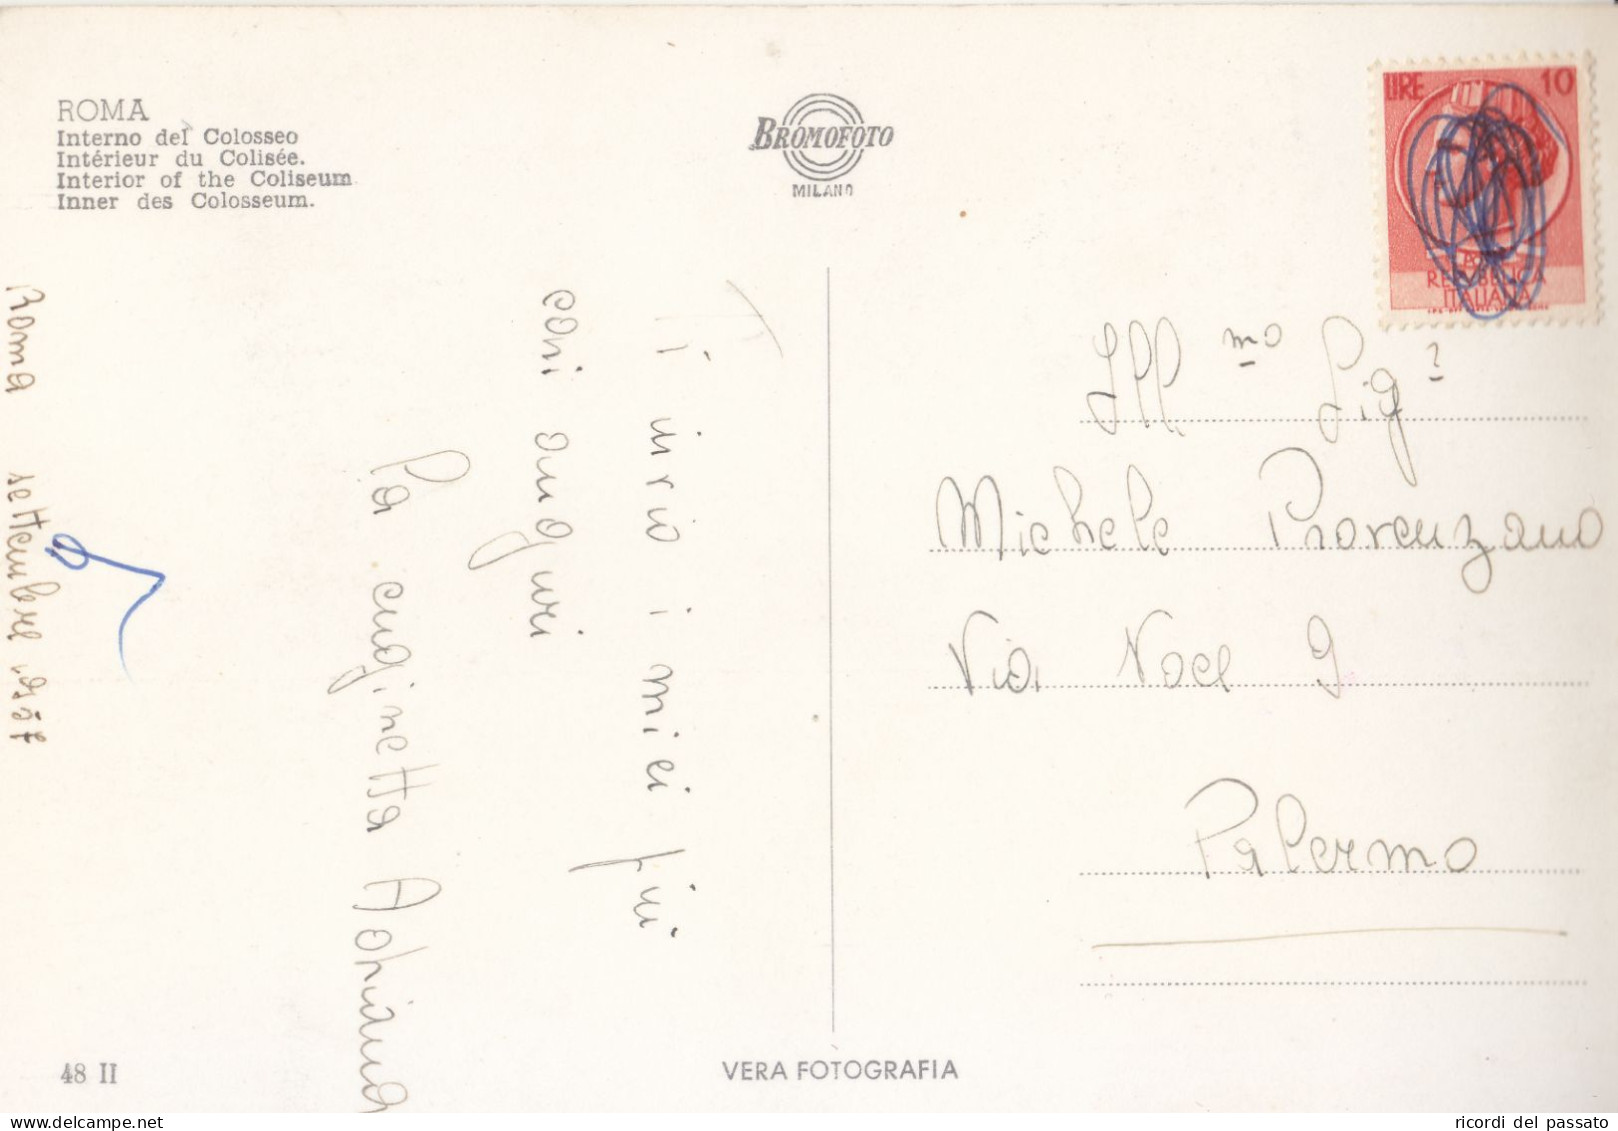 ROMA
Interno del Colosseo
Intérieur du Colisée.
Interior of the Coliseum
Inner des Colosseum.
BROMOFOTO
MILANO
LIRE 10
REPUBBLICA
ITALIANA
Roma settembre
Ti invio i miei più
cari auguri
La cuginetta Adriana
Ill.mo Sig.
Michele Provenzano
Via Noce 9
Palermo
48 II
VERA FOTOGRAFIA
ricordi del passato